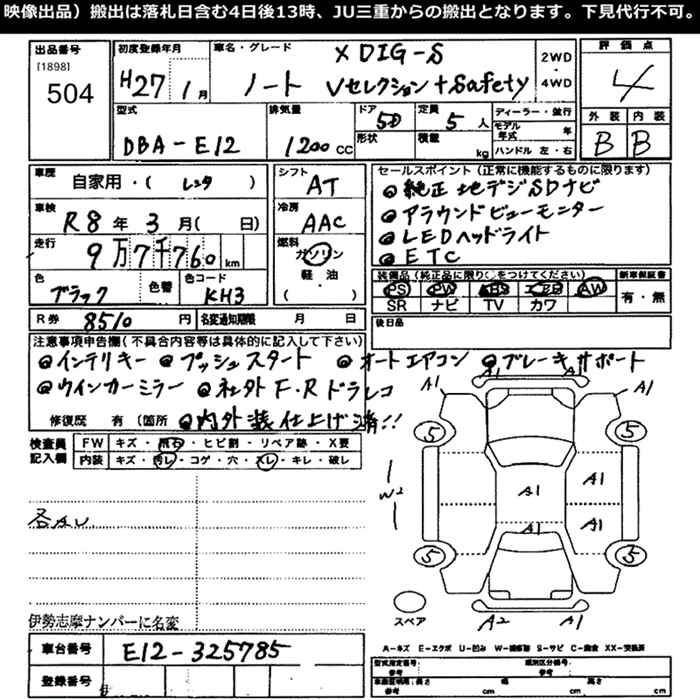 映像出品）搬出は落札日含む4日後13時、JU三重からの搬出となります。下見代行不可。
出品番号
[1898]
504
初度登録年月
H27 1月
車名・グレード
ノート
X DIG-S
Vセレクション+Safety
2WD
・
4WD
評価点
4
外装 内装
B B
型式
DBA-E12
排気量
1200 CC
ドア
5D
形状
定員
5 人
積載
kg
ディーラー・並行
モデル年式 年
ハンドル 左・右
車歴
自家用・( レンタ )
車検
R8年 3月( 日)
走行
9万7千760 km
色
ブラック
色替
色コード
KH3
シフト
AT
冷房
AAC
燃料
ガソリン
軽・油
( )
セールスポイント（正常に機能するものに限ります）
◎純正 地デジSDナビ
◎アラウンドビューモニター
◎LEDヘッドライト
◎ETC
装備品（純正品に限り○をつけてください）
PS PW ABS エアB AW
SR ナビ TV カワ
新車保証書
有・無
R券 8510 円
名変通知期限 月 日
後日品
注意事項申告欄（不具合内容等は具体的に記入して下さい）
◎インテリキー ◎プッシュスタート ◎オートエアコン ◎ブレーキサポート
◎ウインカーミラー ◎社外F.Rドラレコ
修復歴 有（箇所 ◎内外装仕上げ済!!
検査員
記入欄
FW キズ・飛石・ヒビ割・リペア跡・X要
内装 キズ・汚レ・コゲ・穴・スレ・キレ・破レ
伊勢志摩ナンバーに名変
A1 A1 A1 A1
5 5
W2
A1 A1
A1 A1
5 5
スペア
A2 A1
A-キズ E-エクボ U-凹み W-補修跡 S-サビ C-腐食 XX-交換済
車台番号 E12-325785
登録番号
型式指定番号
参考
類別区分番号
参考
長さ
参考 cm
幅
cm
高さ
cm